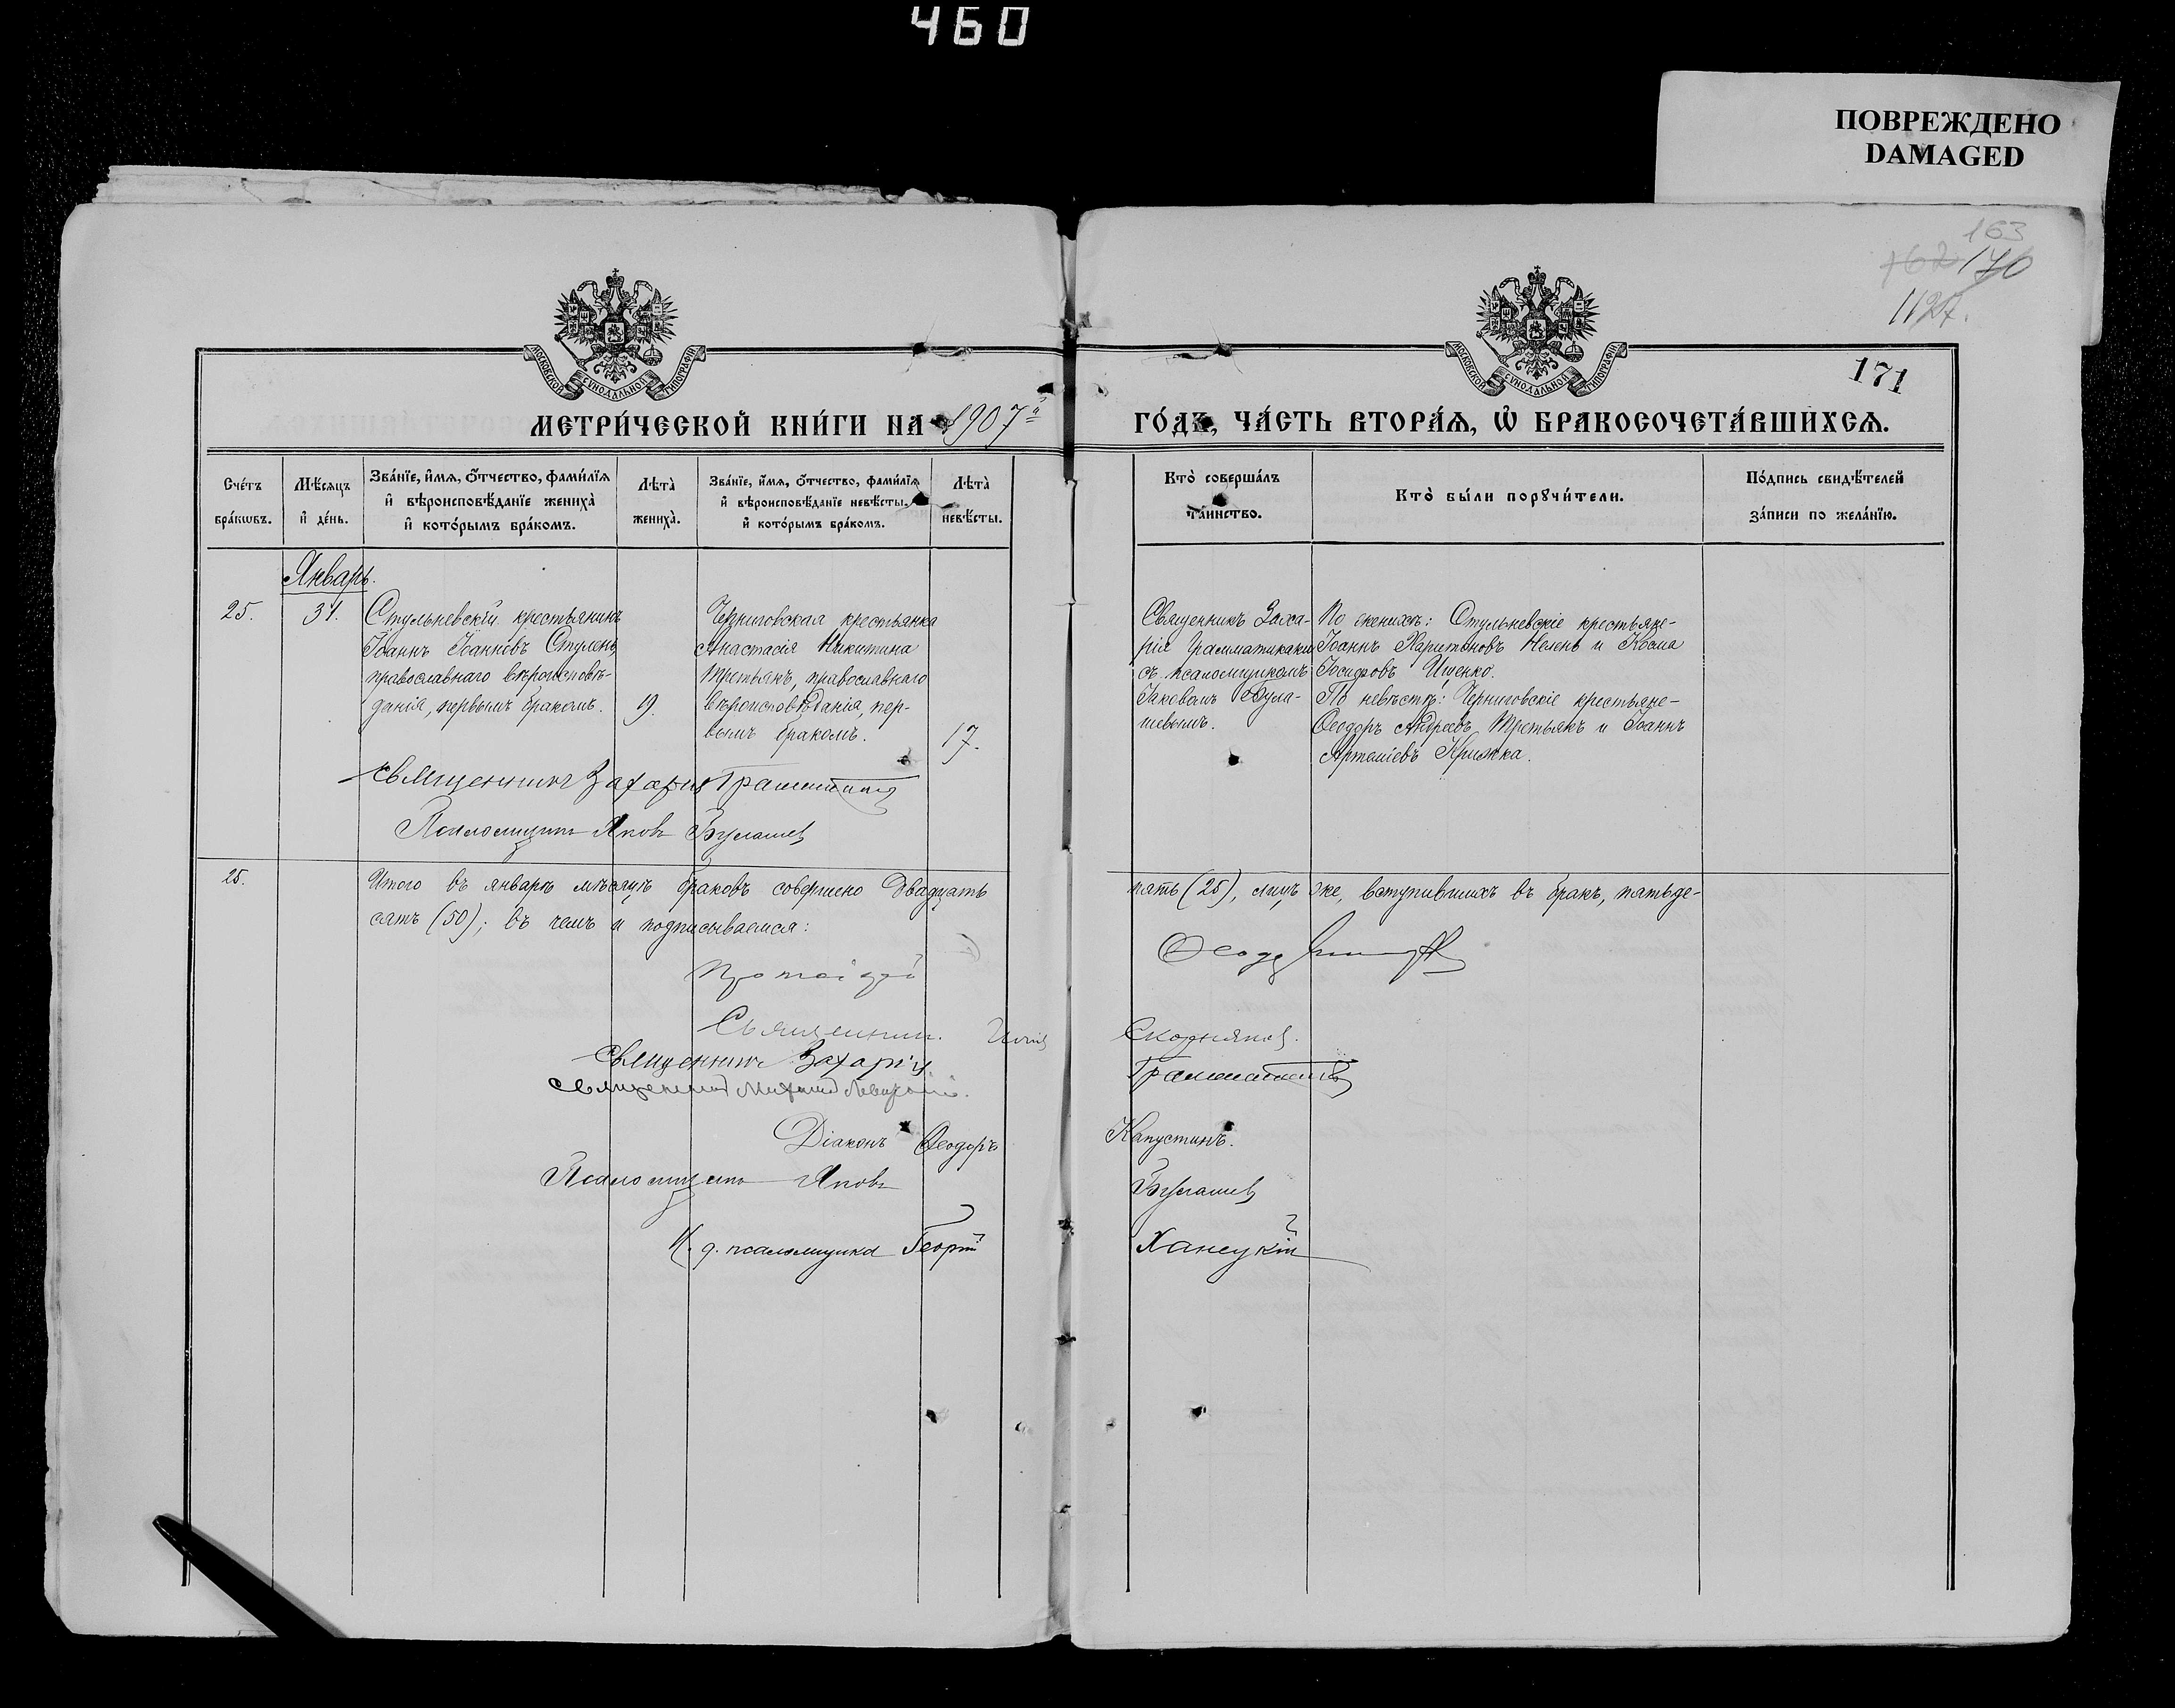 460
ПОВРЕЖДЕНО
DAMAGED
163
162 170
1127.
171
МОСКОВСКОЙ СѴНОДАЛЬНОЙ ТИПОГРАФІИ
МОСКОВСКОЙ СѴНОДАЛЬНОЙ ТИПОГРАФІИ
МЕТРИ́ЧЕСКОЙ КНИ́ГИ НА 1907й ГО́ДЪ, ЧА́СТЬ ВТОРА́Ѧ, Ѽ БРАКОСОЧЕТА́ВШИХСѦ.
Сче́тъ бра́кѡвъ.
Мѣ́сѧцъ и҆ де́нь.
Зва́нїе, и҆́мѧ, ѻ҆́тчество, фами́лїѧ
и҆ вѣроисповѣ́данїе жениха̀
и҆ кото́рымъ бра́комъ.
Лѣта̀ жениха̀.
Зва́нїе, и҆́мѧ, ѻ҆́тчество, фами́лїѧ
и҆ вѣроисповѣ́данїе невѣ́сты.
и҆ кото́рымъ бра́комъ.
Лѣта̀ невѣ́сты.
Кто̀ соверша́лъ та́инство.
Кто̀ бы́ли порꙋчи́тели.
По́дпись свидѣ́телей за́писи по жела́нїю.
Январь.
25.
31.
Стульневскій крестьянинъ
Іоаннъ Іоанновъ Стулень,
православнаго вѣроисповѣ-
данія, первымъ бракомъ.
19.
Черниговская крестьянка
Анастасія Никитина
Третьякъ, православнаго
вѣроисповѣданія, пер-
вымъ бракомъ.
17.
Священникъ Заха-
рія Грамматикаки
съ псаломщикомъ
Іаковомъ Була-
шевымъ.
По женихѣ: Стульневскіе крестьяне-
Іоаннъ Харитоновъ Нелень и Косма
Іосифовъ Ищенко.
По невѣстѣ: Черниговскіе крестьяне-
Ѳеодоръ Андреевъ Третьякъ и Іоаннъ
Артеміевъ Крижка.
Священникъ Захарія
Псаломщикъ Яковъ Булашев
25.
Итого въ январѣ мѣсяцѣ браковъ совершено двадцать пять (25), лицъ же, вступившихъ въ бракъ, пятьде-
сятъ (50); въ чемъ и подписываемся:
Ѳеодоръ
Священникъ
Священникъ Захарія
Священникъ Михаилъ
Діаконъ Ѳеодоръ Капустинъ.
Псаломщикъ Яковъ Булашев
И. д. псаломщика Георгій Ханецкій